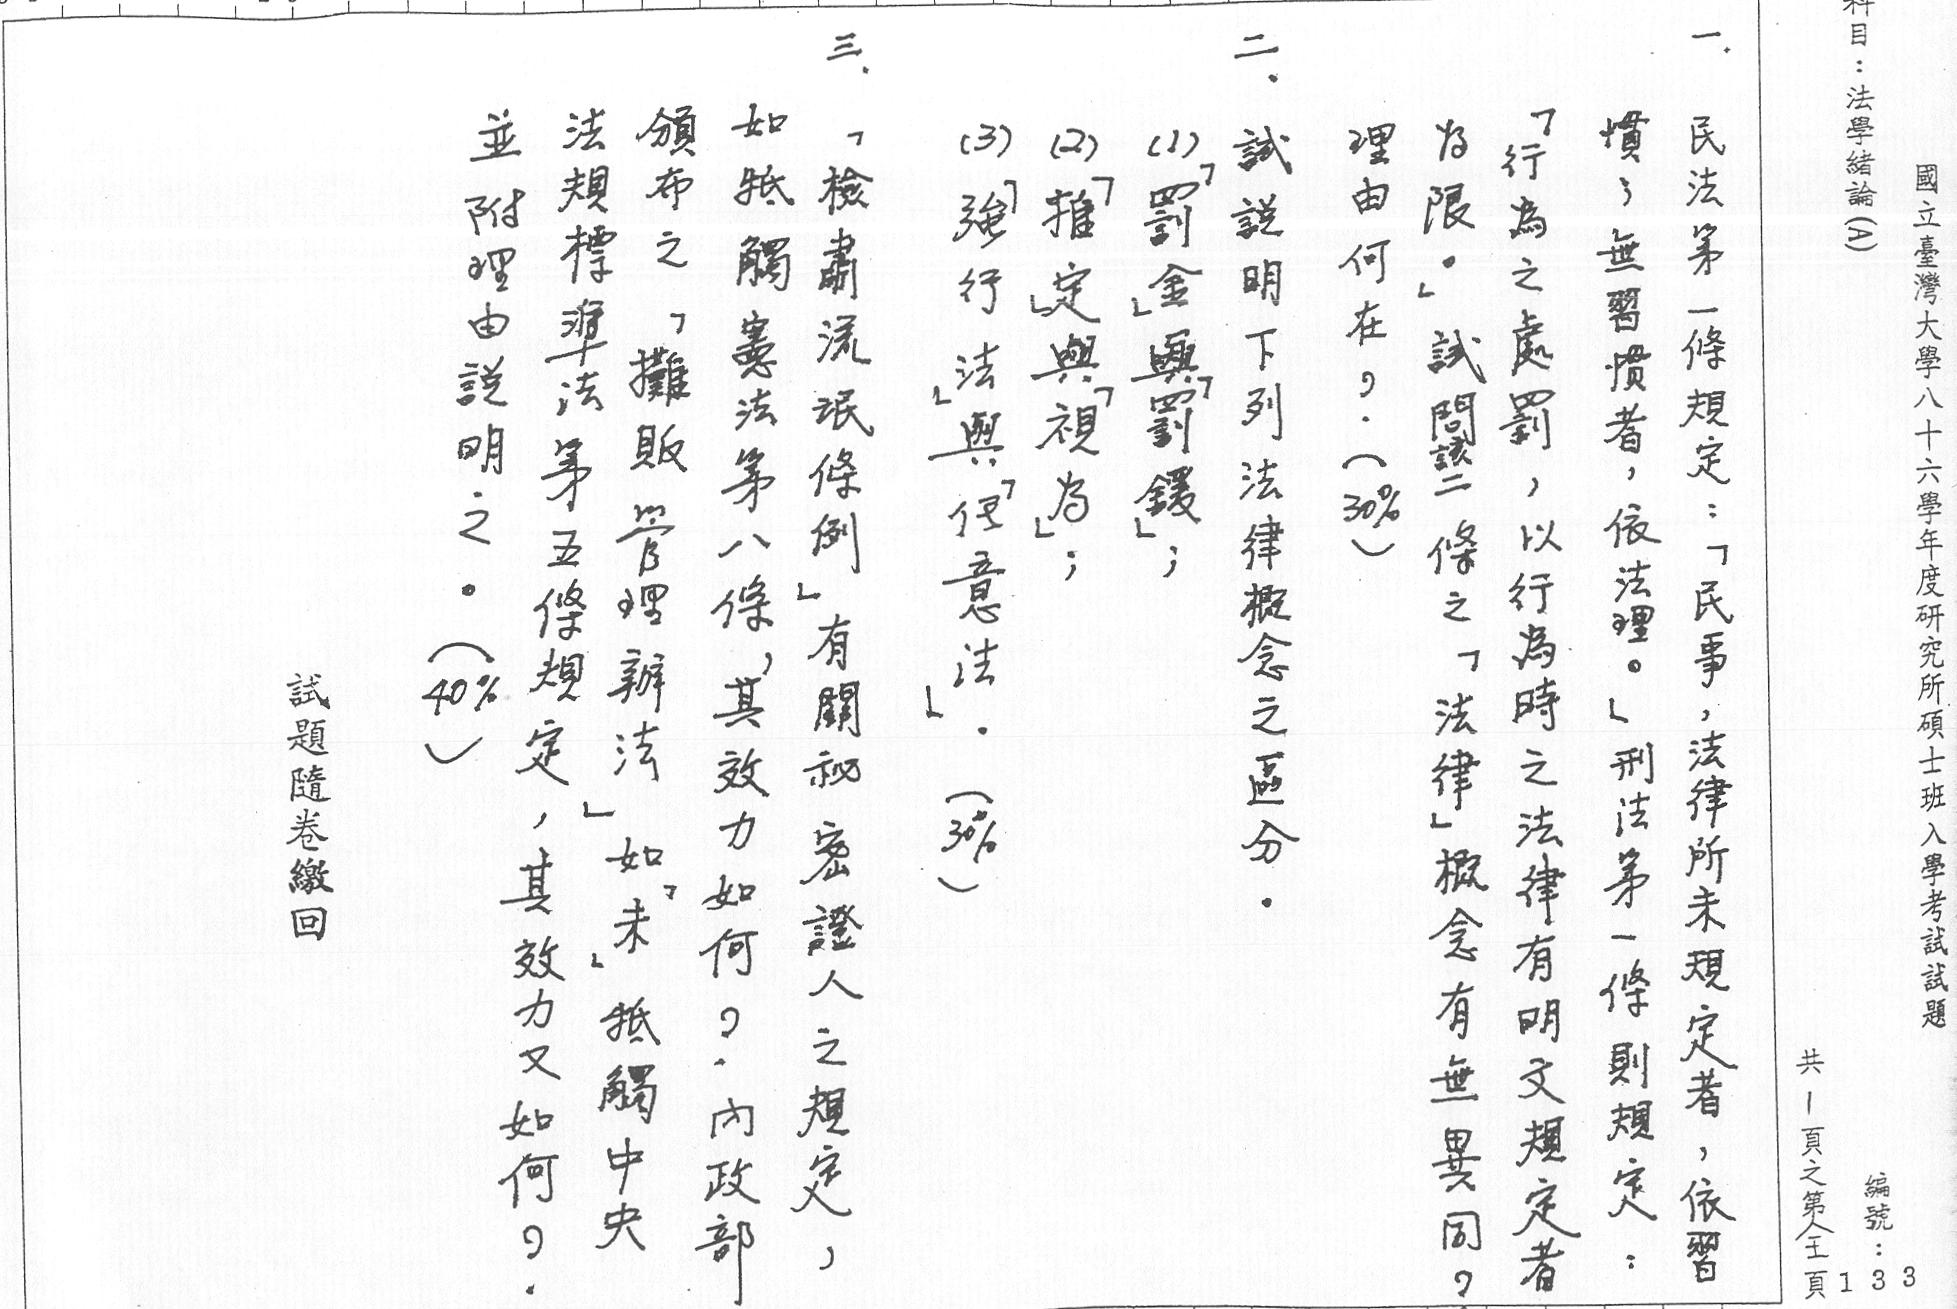 國立臺灣大學八十六學年度研究所碩士班入學考試試題
科目：法學緒論(A)
編號：133
共1頁之第全王頁
一.
民法第一條規定：「民事，法律所未規定者，依習
慣；無習慣者，依法理。」刑法第一條則規定：
「行為之處罰，以行為時之法律有明文規定者
為限。」試問該二條之「法律」概念有無異同？
理由何在？.（30%）
二.
試說明下列法律概念之區分.
(1)「罰金」與「罰鍰」；
(2)「推定」與「視為」；
(3)「強行法」與「任意法」.（30%）
三.
「檢肅流氓條例」有關秘密證人之規定，
如牴觸憲法第八條，其效力如何？.內政部
頒布之「攤販管理辦法」如「未」牴觸中央
法規標準法第五條規定，其效力又如何？.
並附理由說明之。（40%）
試題隨卷繳回